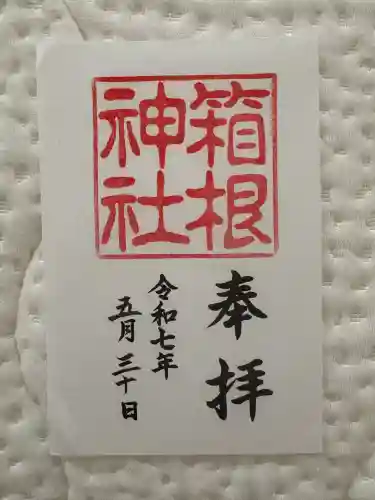 箱根
神社
奉拝
令和七年
五月三十日